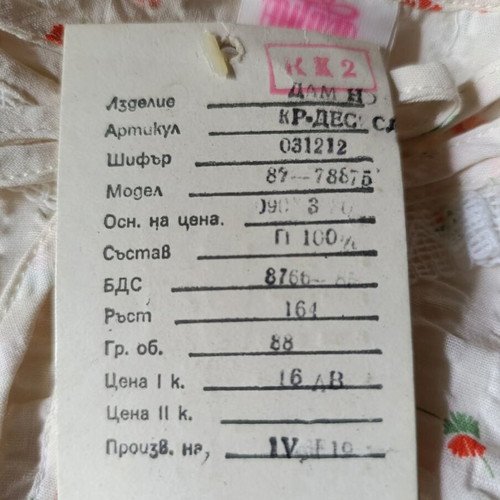 КК2
Изделие ДАМ
Артикул КР-ДЕС
Шифър 031212
Модел 87-78875
Осн. на цена.
Състав П 100%
БДС 8766
Ръст 164
Гр. об. 88
Цена I к. 16 ЛВ
Цена II к.
Произв. на, IV